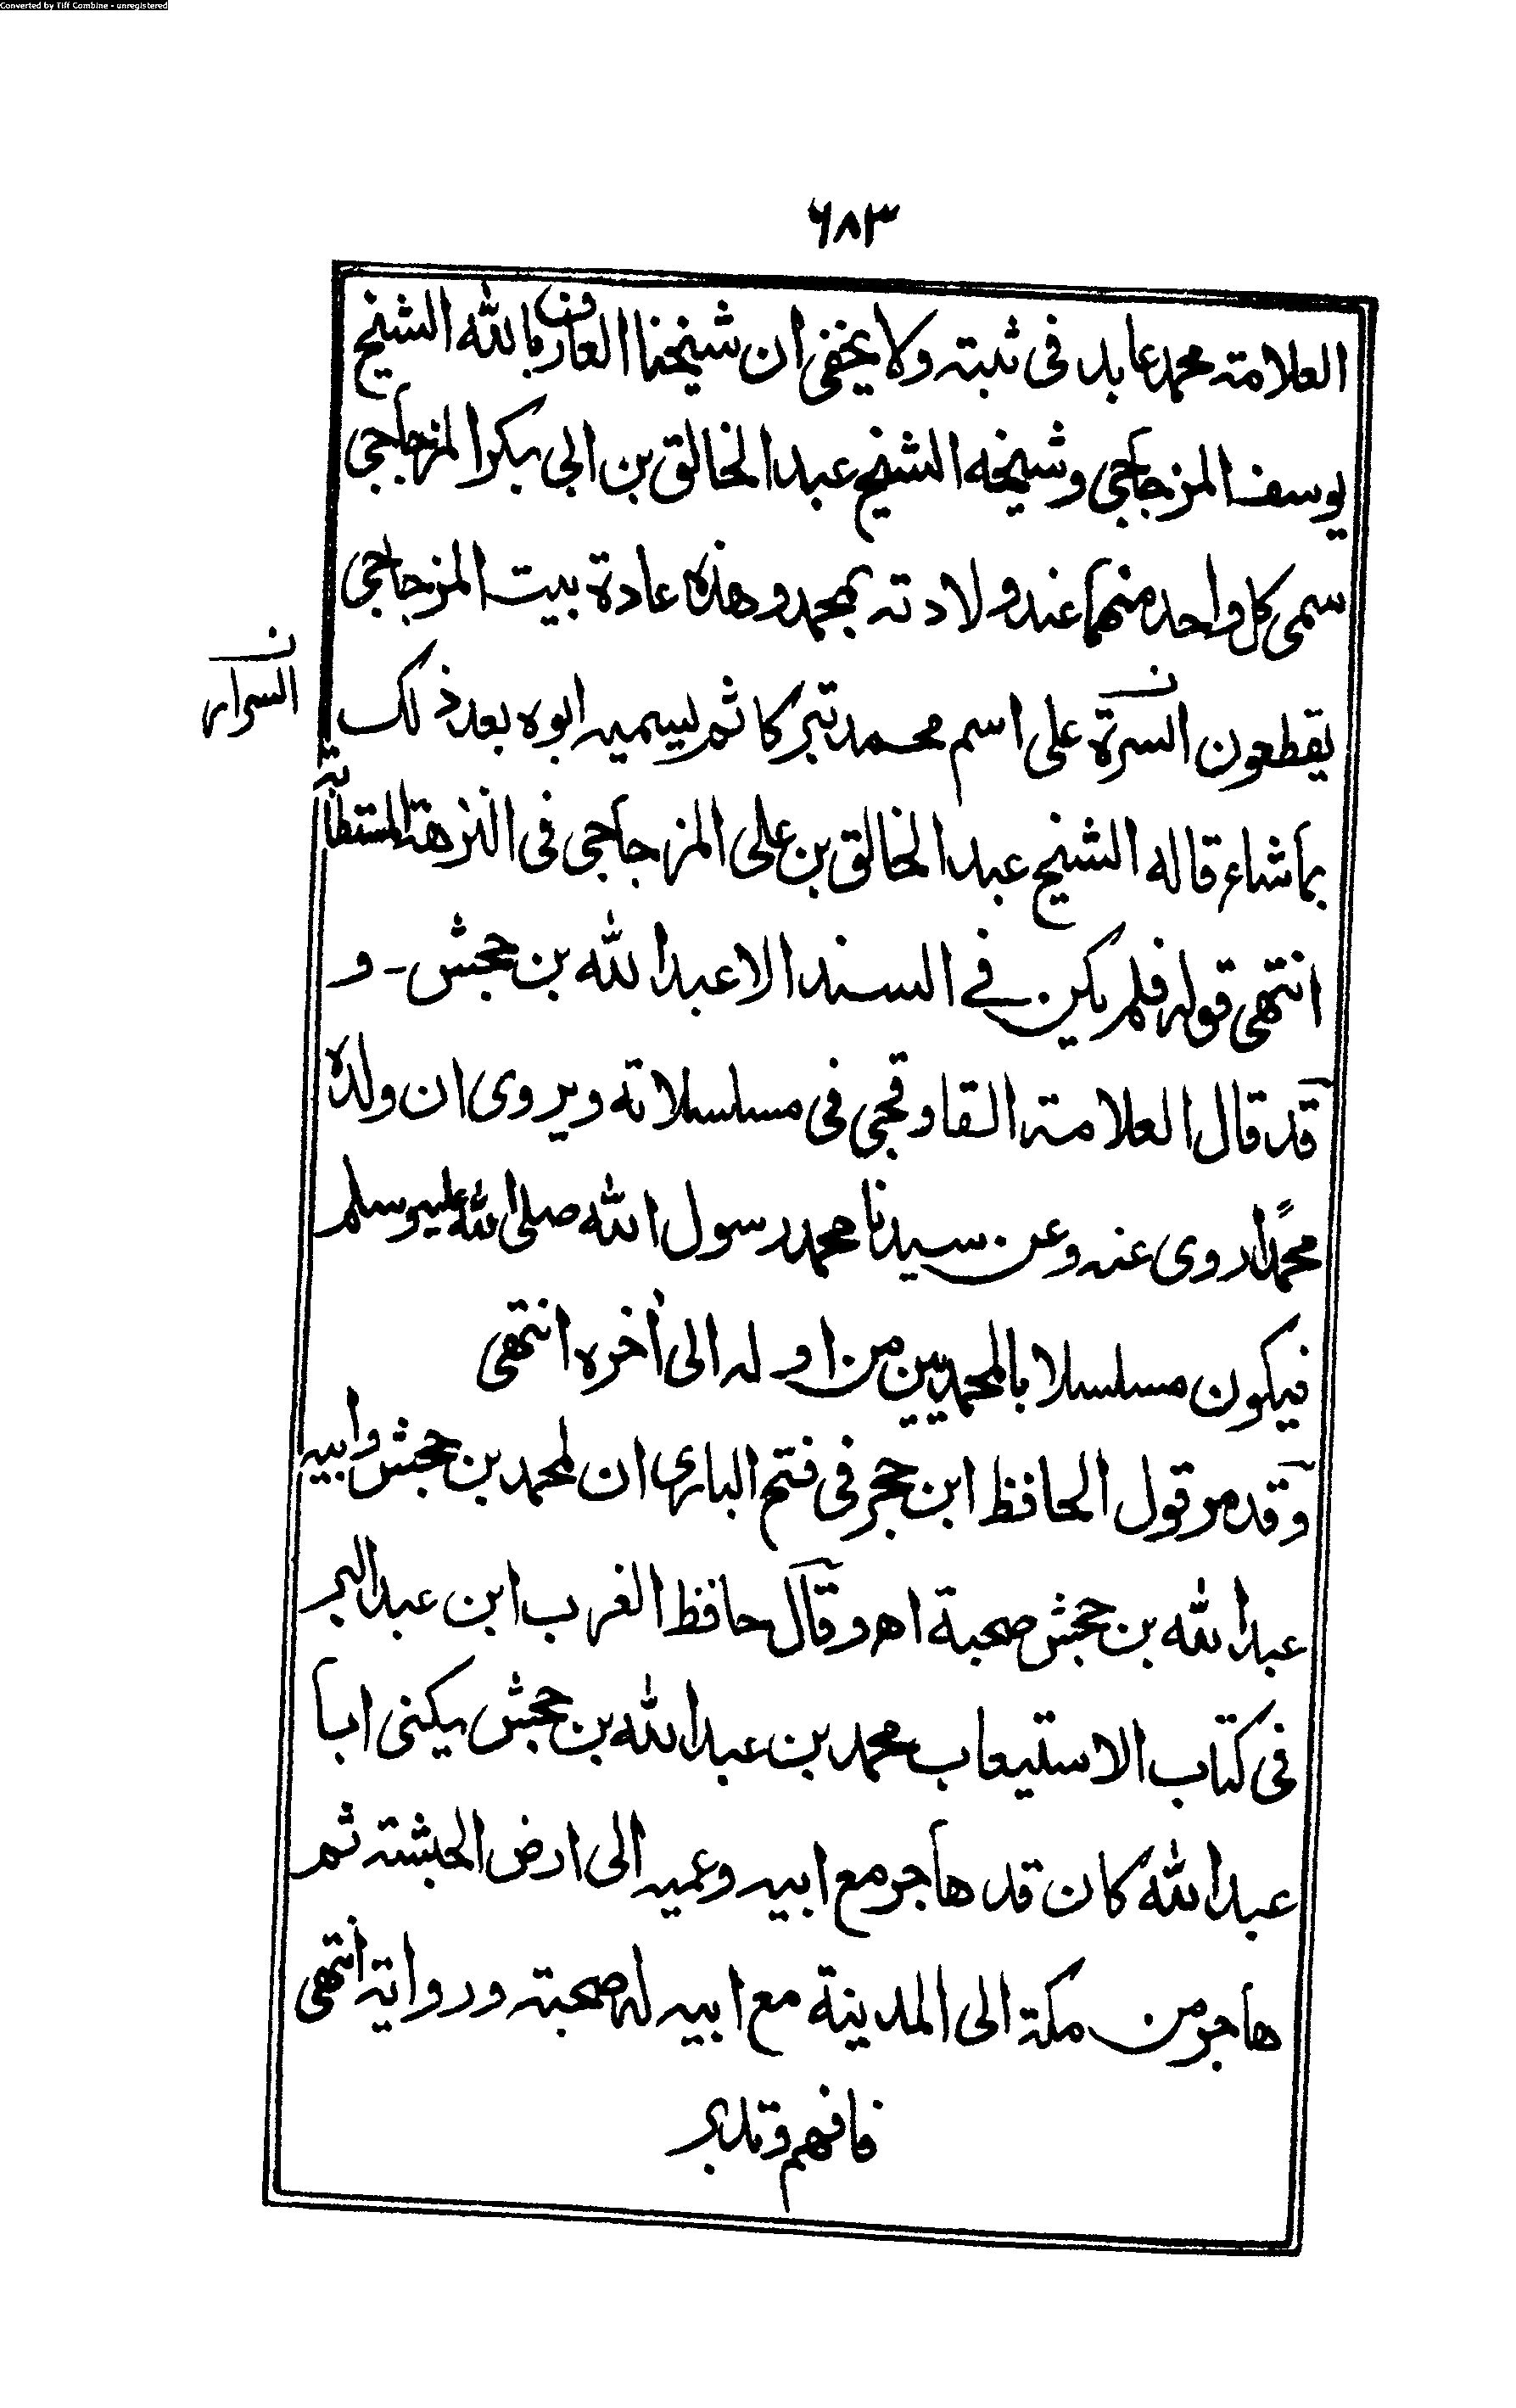 Converted by Tiff Combine - unregistered
٦٨٣
العلامة محمد عابد فى ثبته ولا يخفى ان شيخنا العارف بالله الشيخ
يوسف المزجاجي وشيخه الشيخ عبد الخالق بن ابى بكر المزجاجي
سمى كل واحد منهما عند ولادته بمحمد وهذه عادة بيت المزجاجي
يقطعون السرة على اسم محمد تبركا ثم يسميه ابوه بعد ذلك
ن
السرار
بما شاء قاله الشيخ عبد الخالق بن على المزجاجي فى النزهة المستطابة
انتهى قوله فلم يكن في السند الا عبد الله بن جحش - و
قد قال العلامة القاوقجي فى مسلسلاته ويروى ان ولده
محمدًا روى عنه وعن سيدنا محمد رسول الله صلى الله عليه وسلم
فيكون مسلسلا بالمحمديين من اوله الى أخره انتهى
وقد مر قول الحافظ ابن حجر فى فتح البارى ان لمحمد بن جحش وابيه
عبد الله بن جحش صحبة اه وقال حافظ الغرب ابن عبد البر
فى كتاب الاستيعاب محمد بن عبد الله بن جحش يكنى ابا
عبد الله كان قد هاجر مع ابيه وعميه الى ارض الحبشة ثم
هاجر من مكة الى المدينة مع ابيه له صحبة ورواية انتهى
فافهم وتدبر